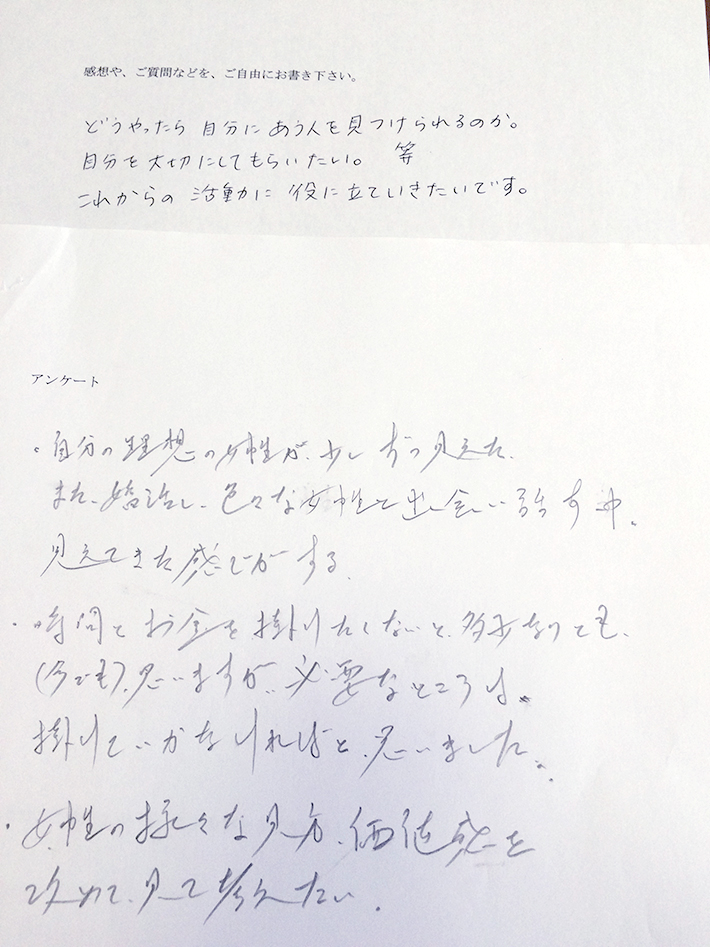 感想や、ご質問などを、ご自由にお書き下さい。
どうやったら 自分に あう人を見つけられるのか。
自分を大切にしてもらいたい。 等
これからの 活動に 役に立ていきたいです。
アンケート
・自分の理想の女性が、少しずつ見えた。
また、婚活し、色々な女性と出会い話す中、
見えてきた感じがする。
・時間とお金を掛けたくないと、なっても、
(今でも)、思いますが、必要なところは、
掛けていかなければと、思いました。
・女性の様々な見方、価値感を
改めて、見て考えたい。